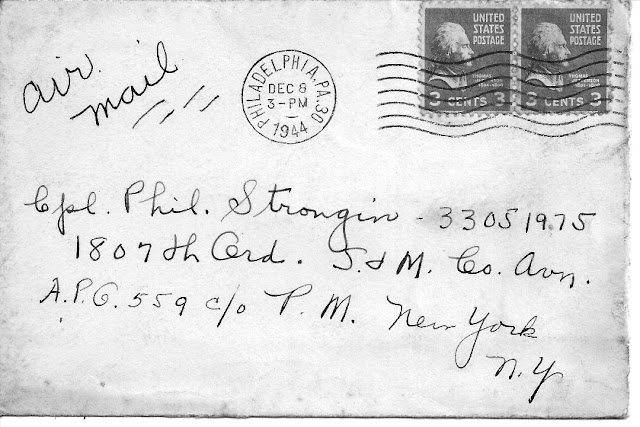 air
mail
PHILADELPHIA, PA. 30
DEC 8
3-PM
1944
UNITED
STATES
POSTAGE
THOMAS
JEFFERSON
3 CENTS 3
UNITED
STATES
POSTAGE
THOMAS
JEFFERSON
3 CENTS 3
Cpl. Phil. Strongin - 33051975
1807th Ord. S. & M. Co. Avn.
A.P.O. 559 c/o P. M. New York
N.Y